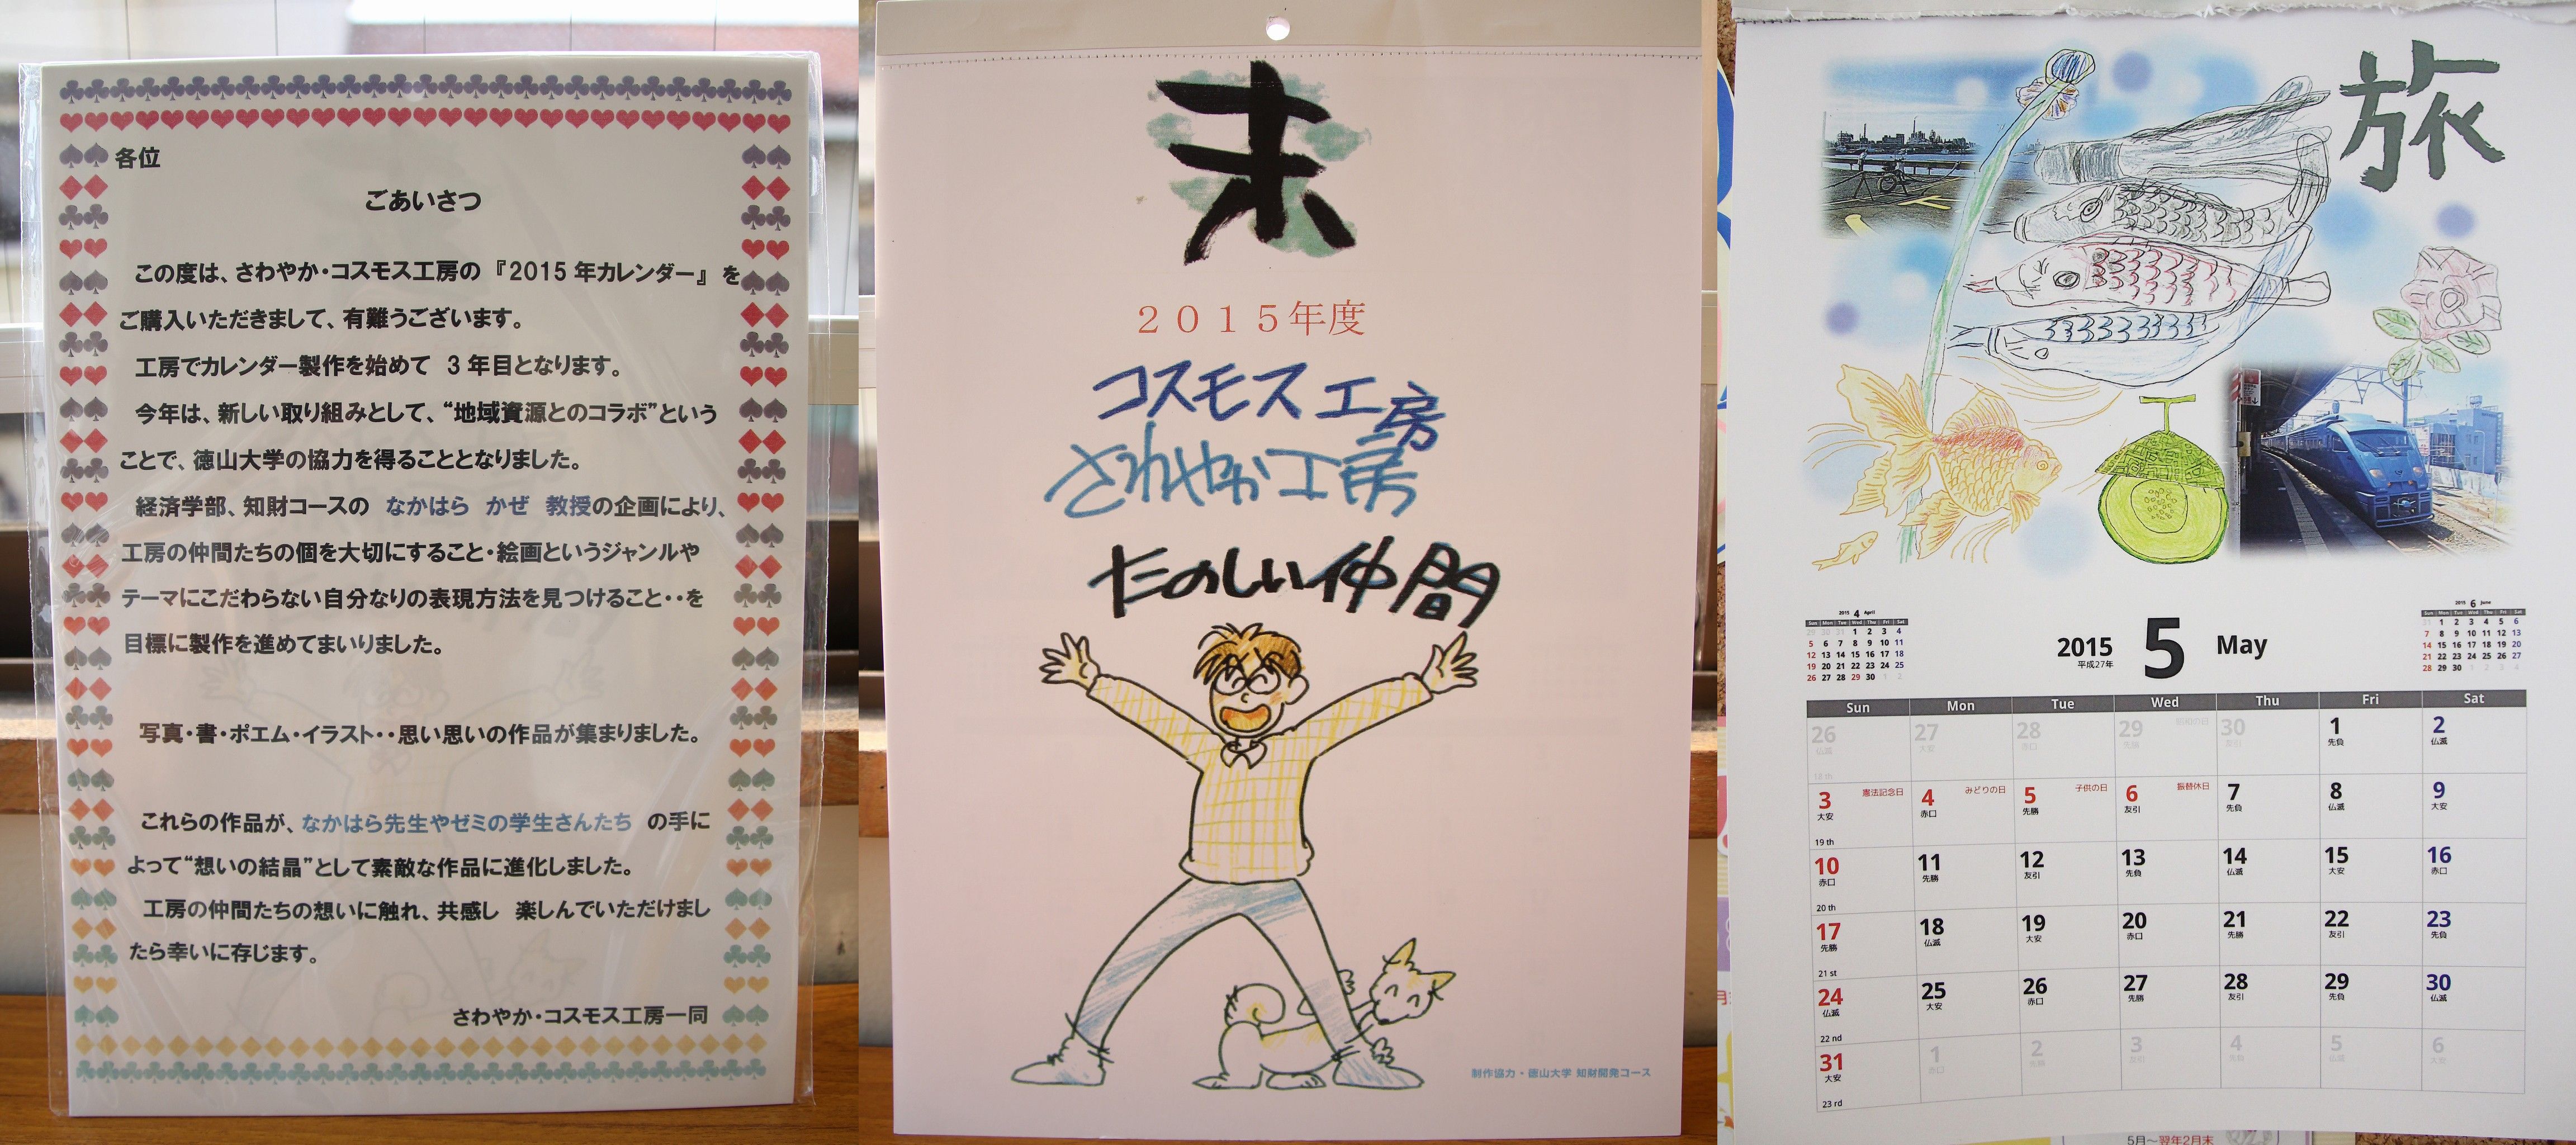 各位
ごあいさつ
この度は、さわやか・コスモス工房の『2015年カレンダー』を
ご購入いただきまして、有難うございます。
工房でカレンダー製作を始めて 3年目となります。
今年は、新しい取り組みとして、“地域資源とのコラボ”という
ことで、徳山大学の協力を得ることとなりました。
経済学部、知財コースの なかはら かぜ 教授の企画により、
工房の仲間たちの個を大切にすること・絵画というジャンルや
テーマにこだわらない自分なりの表現方法を見つけること・・を
目標に製作を進めてまいりました。
写真・書・ポエム・イラスト・・思い思いの作品が集まりました。
これらの作品が、なかはら先生やゼミの学生さんたち の手に
よって“想いの結晶”として素敵な作品に進化しました。
工房の仲間たちの想いに触れ、共感し 楽しんでいただけまし
たら幸いに存じます。
さわやか・コスモス工房一同
未
２０１５年度
コスモス工房
さわやか工房
たのしい仲間
制作協力・徳山大学 知財開発コース
旅
2015 4 April
Sun Mon Tue Wed Thu Fri Sat
29 30 31 1 2 3 4
5 6 7 8 9 10 11
12 13 14 15 16 17 18
19 20 21 22 23 24 25
26 27 28 29 30 1 2
2015 平成27年 5 May
2015 6 June
Sun Mon Tue Wed Thu Fri Sat
31 1 2 3 4 5 6
7 8 9 10 11 12 13
14 15 16 17 18 19 20
21 22 23 24 25 26 27
28 29 30 1 2 3 4
Sun Mon Tue Wed Thu Fri Sat
26 27 28 29 昭和の日 30 1 2
仏滅 大安 赤口 先勝 友引 先負 仏滅
18 th
3 憲法記念日 4 みどりの日 5 子供の日 6 振替休日 7 8 9
大安 赤口 先勝 友引 先負 仏滅 大安
19 th
10 11 12 13 14 15 16
赤口 先勝 友引 先負 仏滅 大安 赤口
20 th
17 18 19 20 21 22 23
先勝 仏滅 大安 赤口 先勝 友引 先負
21 st
24 25 26 27 28 29 30
仏滅 大安 赤口 先勝 友引 先負 仏滅
22 nd
31 1 2 3 4 5 6
大安 赤口 先勝 友引 先負 仏滅 大安
23 rd
5月～翌年2月末